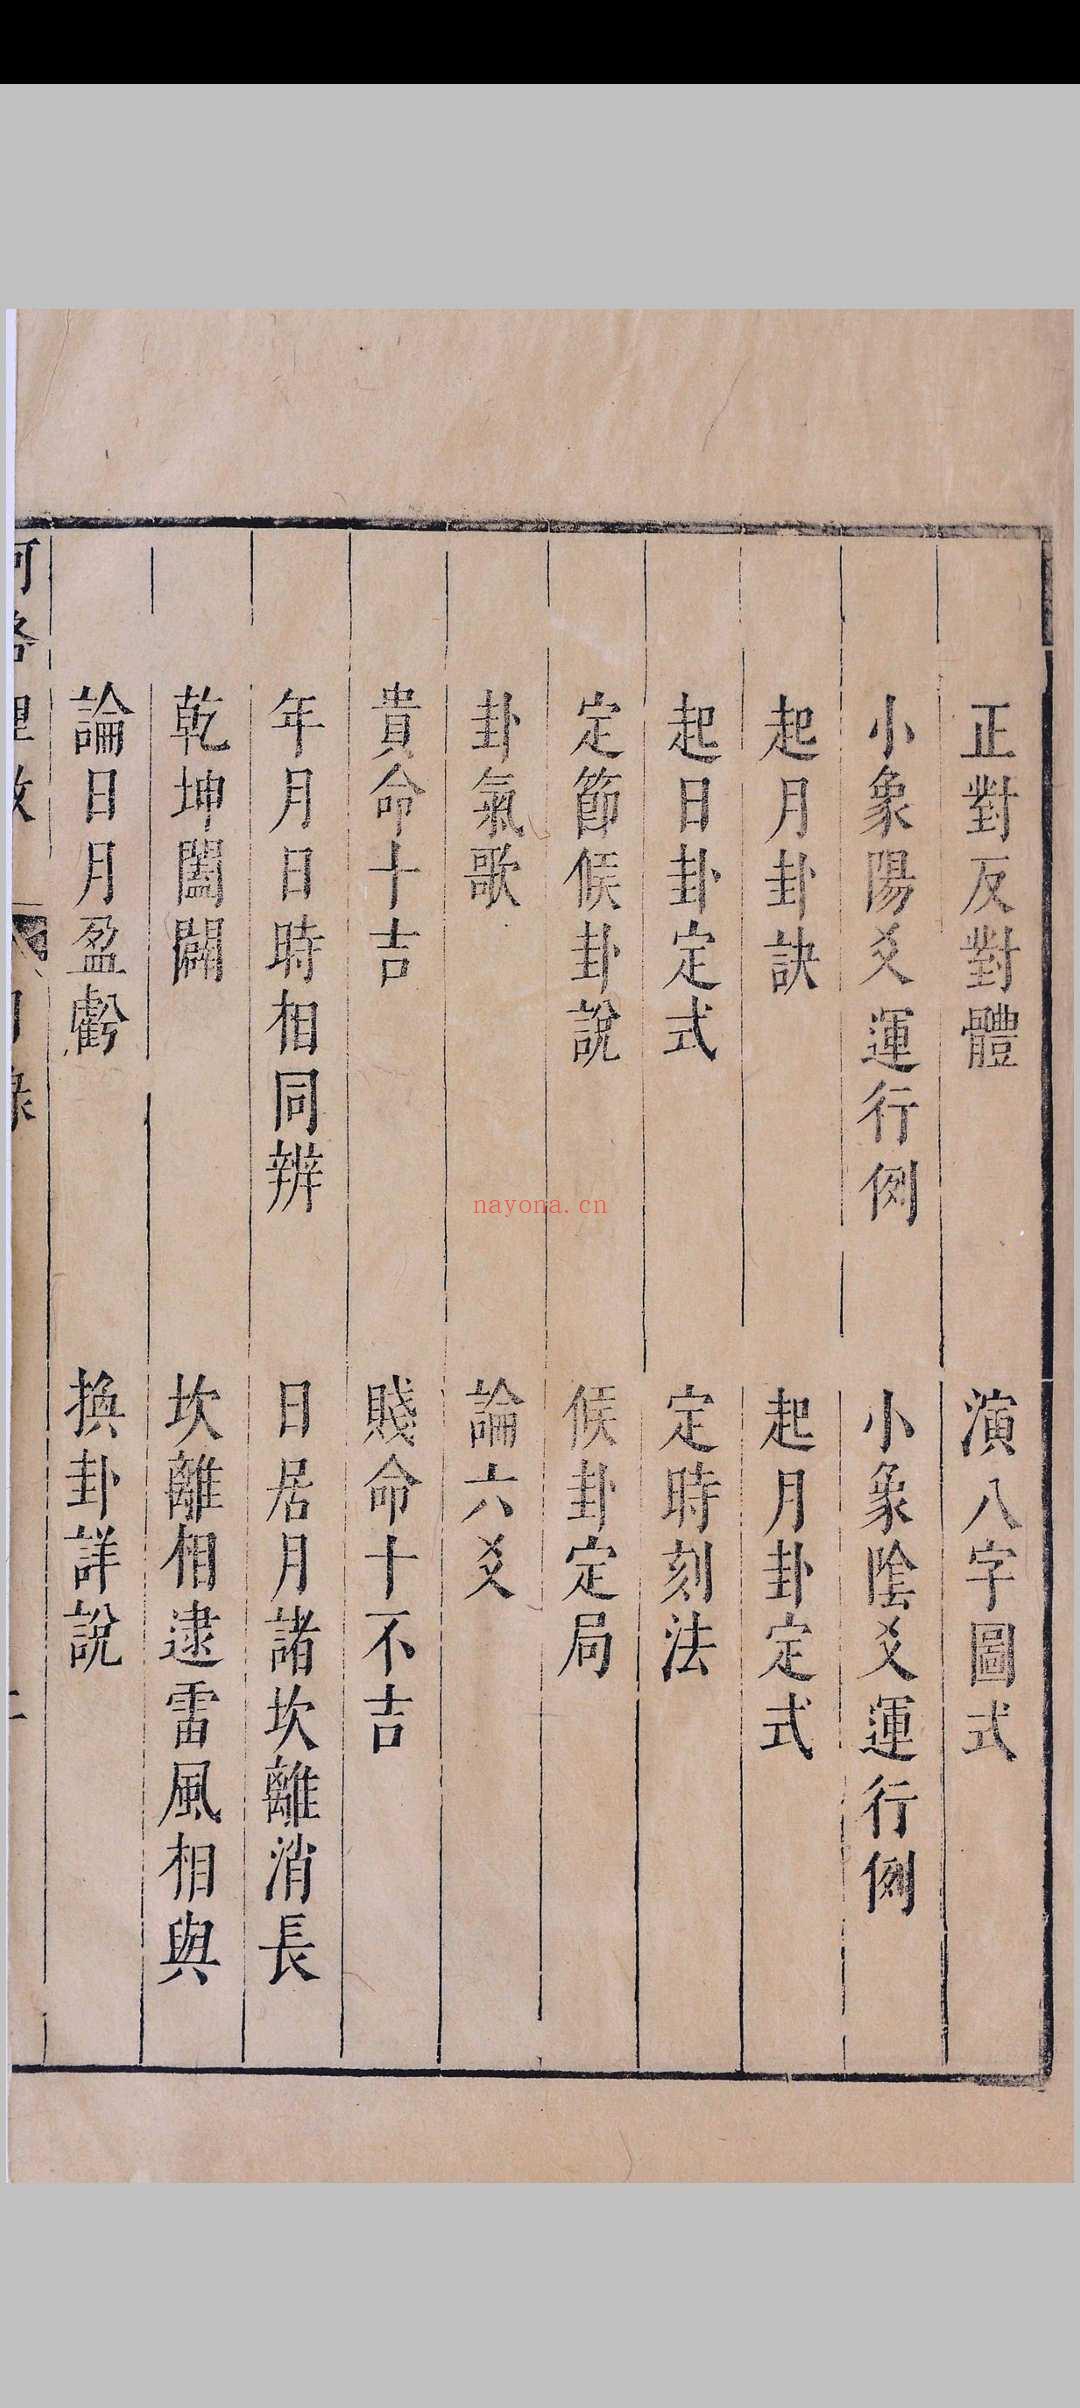 正對反對體　演八字圖式
小象陽爻運行例　小象陰爻運行例
起月卦訣　起月卦定式
起日卦定式　定時刻法
定節候卦說　候卦定局
卦氣歌　論六爻
貴命十吉　賤命十不吉
年月日時相同辨　日居月諸坎離消長
乾坤闔闢　坎離相逮雷風相與
論日月盈虧　換卦詳說
nayona.cn